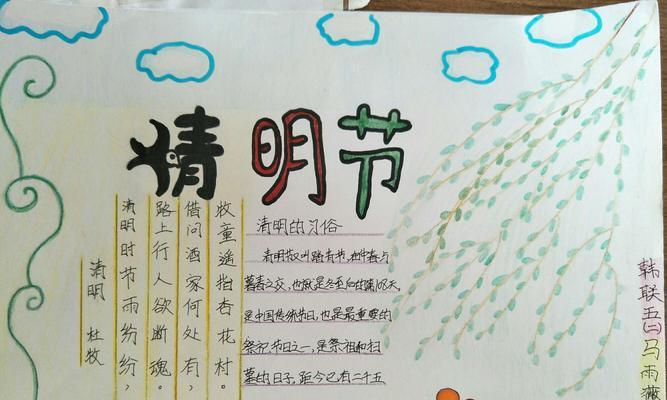 清明节
清明 杜牧
清明时节雨纷纷，
路上行人欲断魂。
借问酒家何处有，
牧童遥指杏花村。
清明的习俗
清明节又叫踏青节，在仲春与
暮春之交，也就是冬至后的第108天，
是中国传统节日，也是最重要的
祭祀节日之一，是祭祖和扫
墓的日子，距今已有二千五
韩联五(二)马雨薇